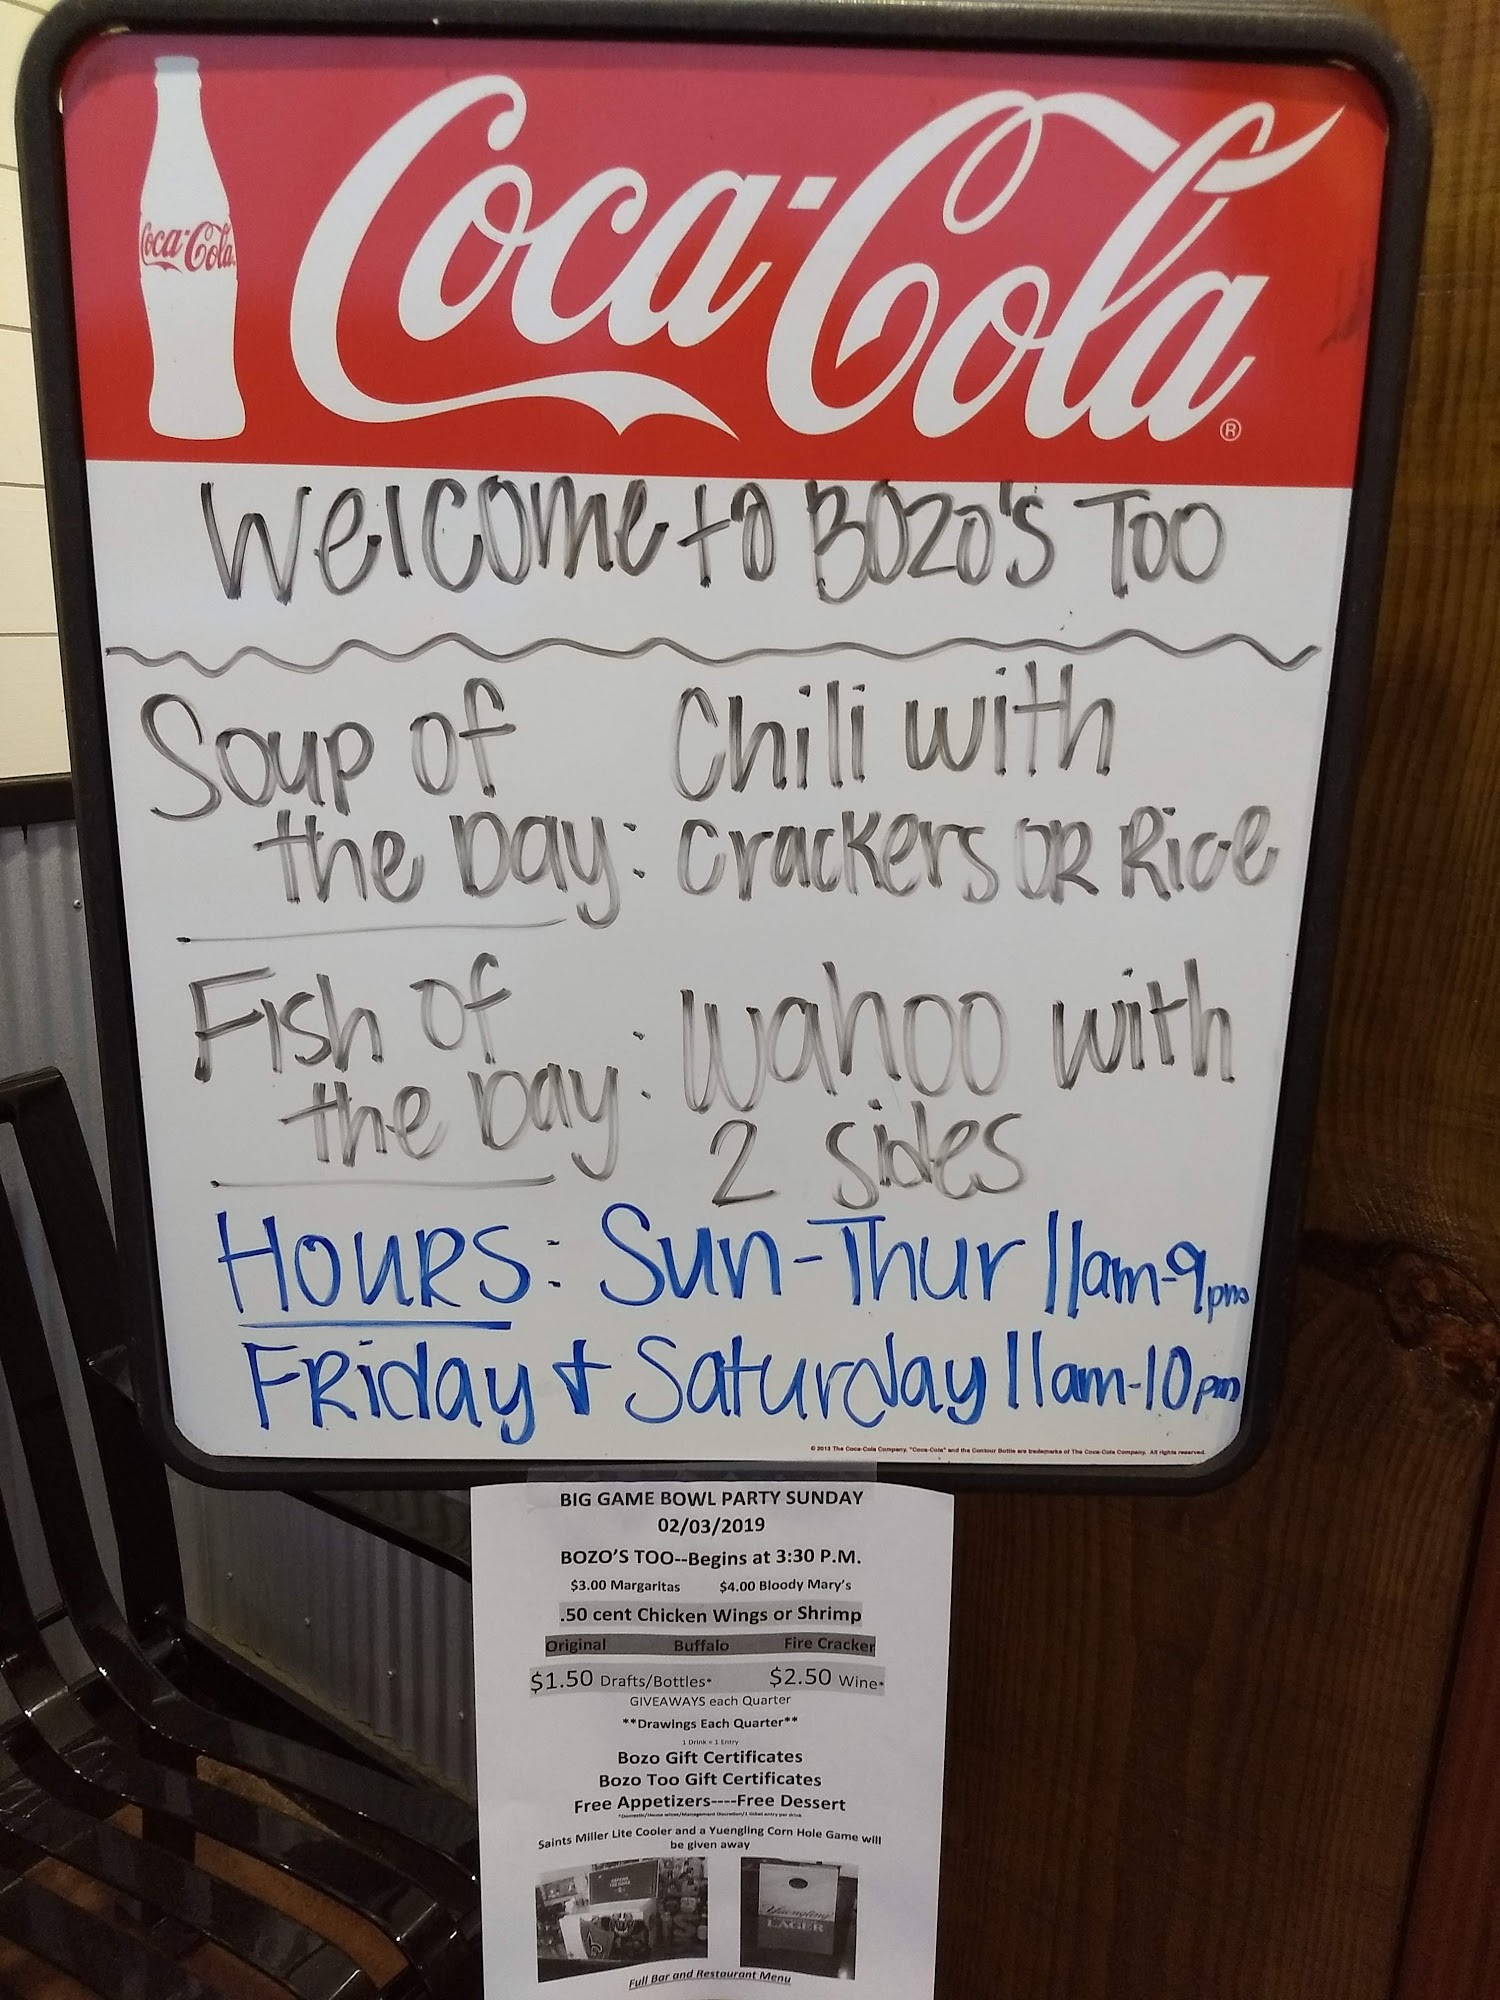 Coca-Cola
Coca-Cola ®
Welcome to Bozo's Too
Soup of the Day: Chili with
Crackers OR Rice
Fish of the Day: Wahoo with
2 sides
Hours: Sun-Thur 11am-9pm
Friday & Saturday 11am-10pm
© 2013 The Coca-Cola Company. "Coca-Cola" and the Contour Bottle are trademarks of The Coca-Cola Company. All rights reserved.
BIG GAME BOWL PARTY SUNDAY
02/03/2019
BOZO'S TOO--Begins at 3:30 P.M.
$3.00 Margaritas $4.00 Bloody Mary's
.50 cent Chicken Wings or Shrimp
Original Buffalo Fire Cracker
$1.50 Drafts/Bottles* $2.50 Wine*
GIVEAWAYS each Quarter
**Drawings Each Quarter**
1 Drink = 1 Entry
Bozo Gift Certificates
Bozo Too Gift Certificates
Free Appetizers----Free Dessert
*Domestic/House wines/Management Discretion/1 ticket entry per drink
Saints Miller Lite Cooler and a Yuengling Corn Hole Game will
be given away
Yuengling
LAGER
Full Bar and Restaurant Menu